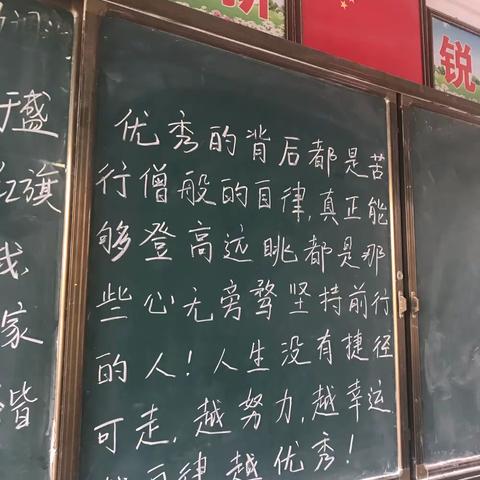 锐
盛
旗
家
皆
优秀的背后都是苦
行僧般的自律,真正能
够登高远眺都是那
些心无旁骛坚持前行
的人!人生没有捷径
可走,越努力,越幸运
自律越优秀!